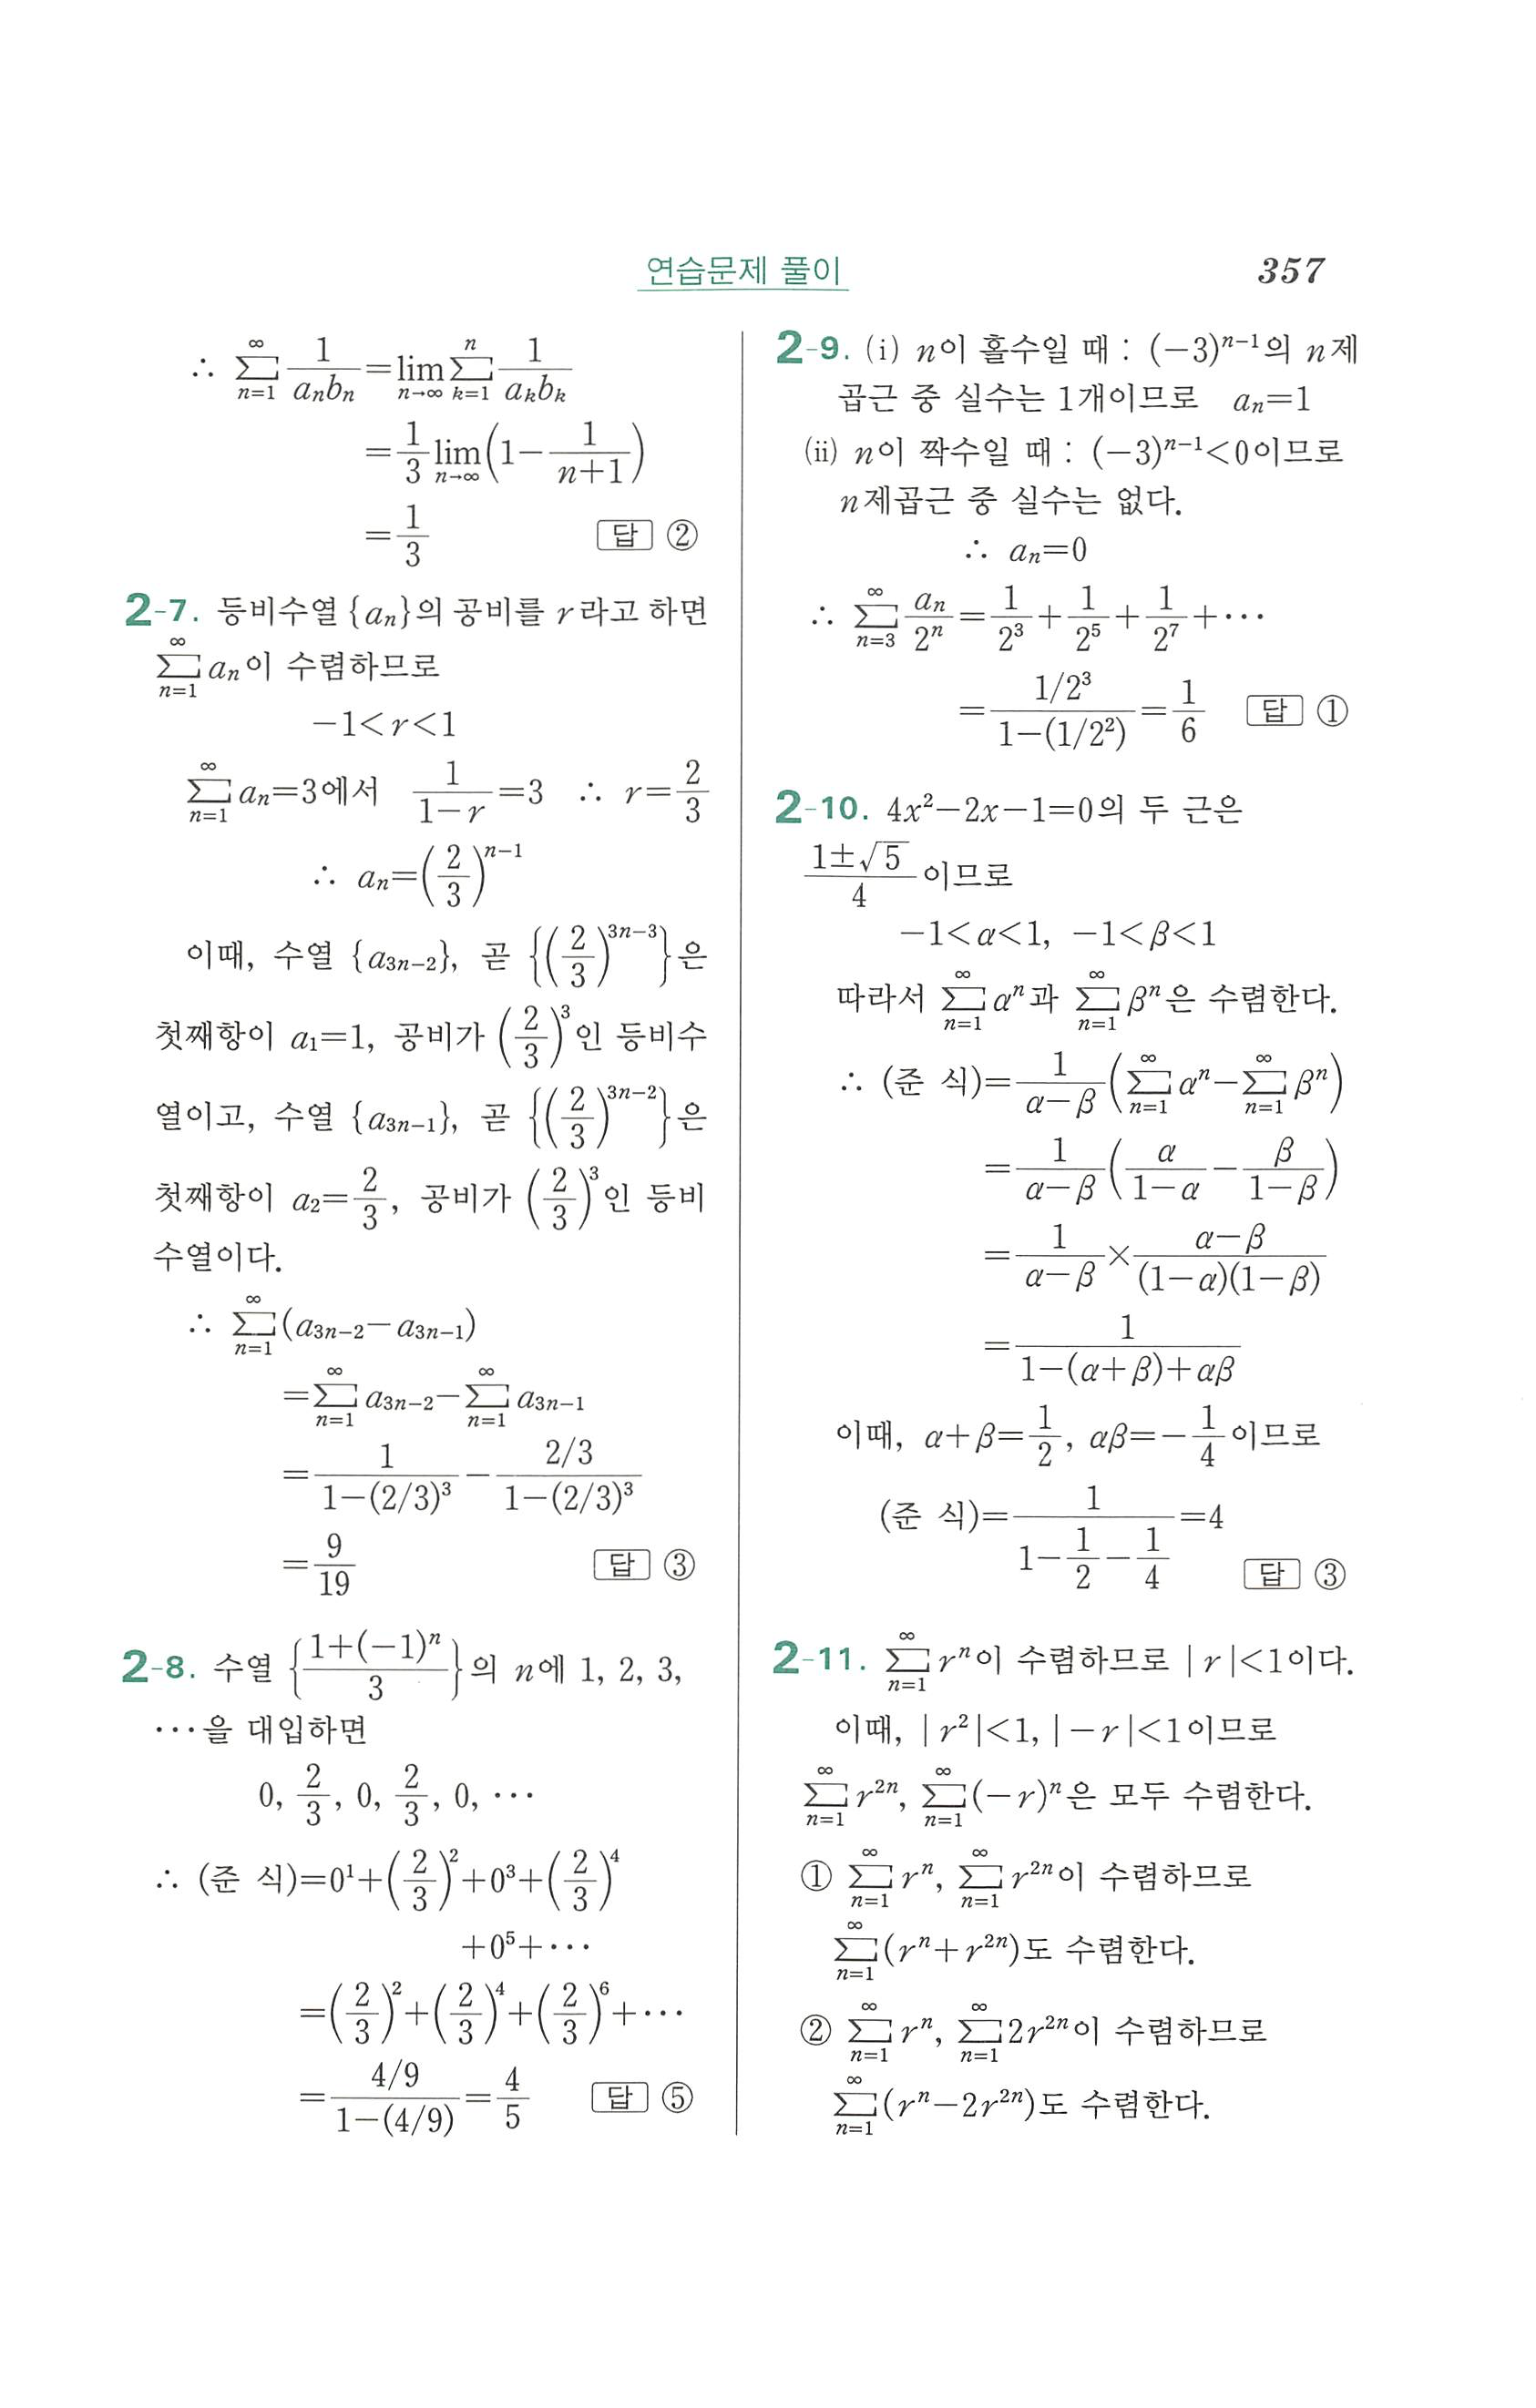 연습문제 풀이 357
∴ $\sum_{n=1}^{\infty}\frac{1}{a_nb_n}=\lim_{n\to\infty}\sum_{k=1}^{n}\frac{1}{a_kb_k}$
$=\frac{1}{3}\lim_{n\to\infty}\left(1-\frac{1}{n+1}\right)$
$=\frac{1}{3}$ 답 ②
2-7. 등비수열 $\{a_n\}$의 공비를 $r$라고 하면
$\sum_{n=1}^{\infty}a_n$이 수렴하므로
$-1<r<1$
$\sum_{n=1}^{\infty}a_n=3$에서 $\frac{1}{1-r}=3$ ∴ $r=\frac{2}{3}$
∴ $a_n=\left(\frac{2}{3}\right)^{n-1}$
이때, 수열 $\{a_{3n-2}\}$, 곧 $\left\{\left(\frac{2}{3}\right)^{3n-3}\right\}$은
첫째항이 $a_1=1$, 공비가 $\left(\frac{2}{3}\right)^3$인 등비수
열이고, 수열 $\{a_{3n-1}\}$, 곧 $\left\{\left(\frac{2}{3}\right)^{3n-2}\right\}$은
첫째항이 $a_2=\frac{2}{3}$, 공비가 $\left(\frac{2}{3}\right)^3$인 등비
수열이다.
∴ $\sum_{n=1}^{\infty}(a_{3n-2}-a_{3n-1})$
$=\sum_{n=1}^{\infty}a_{3n-2}-\sum_{n=1}^{\infty}a_{3n-1}$
$=\frac{1}{1-(2/3)^3}-\frac{2/3}{1-(2/3)^3}$
$=\frac{9}{19}$ 답 ③
2-8. 수열 $\left\{\frac{1+(-1)^n}{3}\right\}$의 $n$에 1, 2, 3,
…을 대입하면
$0, \frac{2}{3}, 0, \frac{2}{3}, 0, \cdots$
∴ (준 식)$=0^1+\left(\frac{2}{3}\right)^2+0^3+\left(\frac{2}{3}\right)^4$
$+0^5+\cdots$
$=\left(\frac{2}{3}\right)^2+\left(\frac{2}{3}\right)^4+\left(\frac{2}{3}\right)^6+\cdots$
$=\frac{4/9}{1-(4/9)}=\frac{4}{5}$ 답 ⑤
2-9. (i) $n$이 홀수일 때 : $(-3)^{n-1}$의 $n$제
곱근 중 실수는 1개이므로 $a_n=1$
(ii) $n$이 짝수일 때 : $(-3)^{n-1}<0$이므로
$n$제곱근 중 실수는 없다.
∴ $a_n=0$
∴ $\sum_{n=3}^{\infty}\frac{a_n}{2^n}=\frac{1}{2^3}+\frac{1}{2^5}+\frac{1}{2^7}+\cdots$
$=\frac{1/2^3}{1-(1/2^2)}=\frac{1}{6}$ 답 ①
2-10. $4x^2-2x-1=0$의 두 근은
$\frac{1\pm\sqrt{5}}{4}$이므로
$-1<\alpha<1, -1<\beta<1$
따라서 $\sum_{n=1}^{\infty}\alpha^n$과 $\sum_{n=1}^{\infty}\beta^n$은 수렴한다.
∴ (준 식)$=\frac{1}{\alpha-\beta}\left(\sum_{n=1}^{\infty}\alpha^n-\sum_{n=1}^{\infty}\beta^n\right)$
$=\frac{1}{\alpha-\beta}\left(\frac{\alpha}{1-\alpha}-\frac{\beta}{1-\beta}\right)$
$=\frac{1}{\alpha-\beta}\times\frac{\alpha-\beta}{(1-\alpha)(1-\beta)}$
$=\frac{1}{1-(\alpha+\beta)+\alpha\beta}$
이때, $\alpha+\beta=\frac{1}{2}$, $\alpha\beta=-\frac{1}{4}$이므로
(준 식)$=\frac{1}{1-\frac{1}{2}-\frac{1}{4}}=4$ 답 ③
2-11. $\sum_{n=1}^{\infty}r^n$이 수렴하므로 $|r|<1$이다.
이때, $|r^2|<1, |-r|<1$이므로
$\sum_{n=1}^{\infty}r^{2n}$, $\sum_{n=1}^{\infty}(-r)^n$은 모두 수렴한다.
① $\sum_{n=1}^{\infty}r^n$, $\sum_{n=1}^{\infty}r^{2n}$이 수렴하므로
$\sum_{n=1}^{\infty}(r^n+r^{2n})$도 수렴한다.
② $\sum_{n=1}^{\infty}r^n$, $\sum_{n=1}^{\infty}2r^{2n}$이 수렴하므로
$\sum_{n=1}^{\infty}(r^n-2r^{2n})$도 수렴한다.